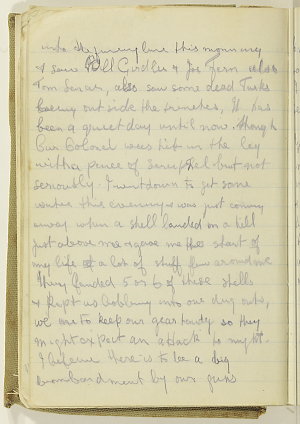 into the firing line this morning
& saw Bill Girdler & Joe Fern also
Tom , also saw some dead Turks
laying out side the trenches, It has
been a quiet day until now. though
Our Colonel was hit in the leg
with a peice of but not
seriously. I went down to get some
water this evening & was just coming
away when a shell landed on a hill
just above me & gave me the start of
my life a lot of stuff flew around me
They landed 5 or 6 of these shells
& kept us bobbing into our dug outs,
we are to keep our gear handy so they
might expect an attack to night.
I believe there is to be a big
bombardment by our guns